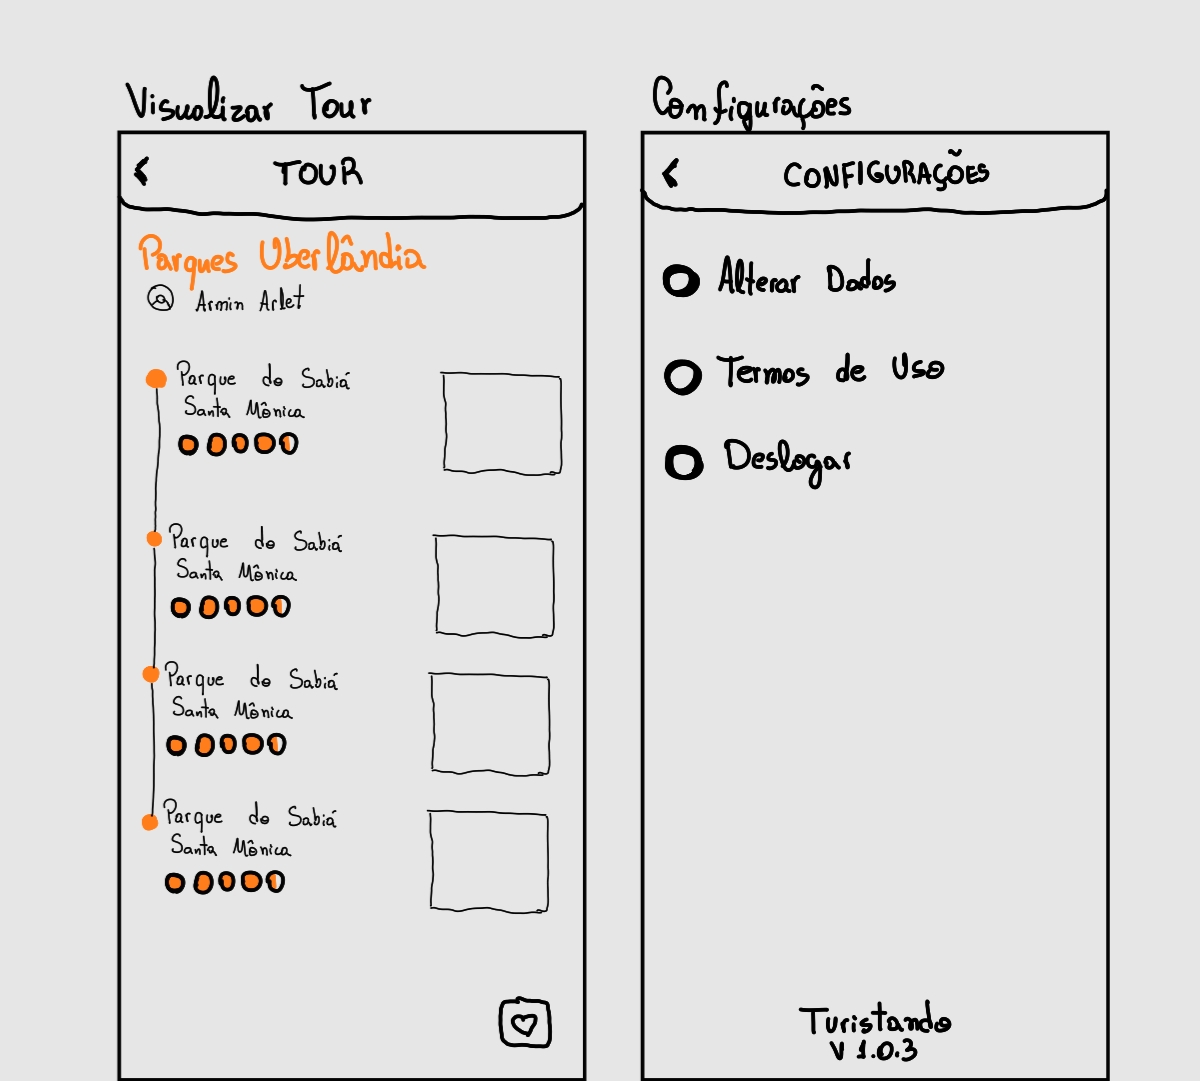 Visualizar Tour
TOUR
Parques Uberlândia
Armin Arlet
Parque do Sabiá
Santa Mônica
Parque do Sabiá
Santa Mônica
Parque do Sabiá
Santa Mônica
Parque do Sabiá
Santa Mônica
Configurações
CONFIGURAÇÕES
Alterar Dados
Termos de Uso
Deslogar
Turistando
V 1.0.3